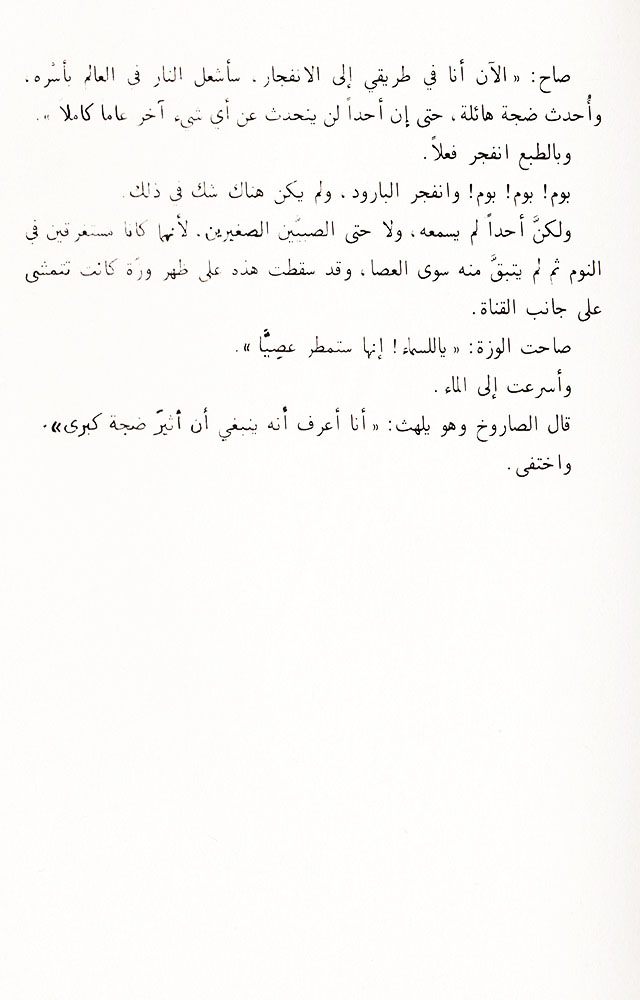 صاح: « الآن أنا في طريقي إلى الانفجار. سأشعل النار فى العالم بأسْره.
وأُحدث ضجة هائلة، حتى إن أحداً لن يتحدث عن أي شيء آخر عاما كاملا ».
وبالطبع انفجر فعلاً.
بوم! بوم! بوم! وانفجر البارود. ولم يكن هناك شك فى ذلك.
ولكنَّ أحداً لم يسمعه، ولا حتى الصبيَّين الصغيرين. لأنهما كانا مستغرقين في
النوم ثم لم يتبقَّ منه سوى العصا، وقد سقطت هذه على ظهر وزّة كانت تتمشى
على جانب القناة.
صاحت الوزة: « ياللسماء! إنها ستمطر عصِيًّا ».
وأسرعت إلى الماء.
قال الصاروخ وهو يلهث: « أنا أعرف أنه ينبغي أن أثيرَ ضجة كبرى».
واختفى.